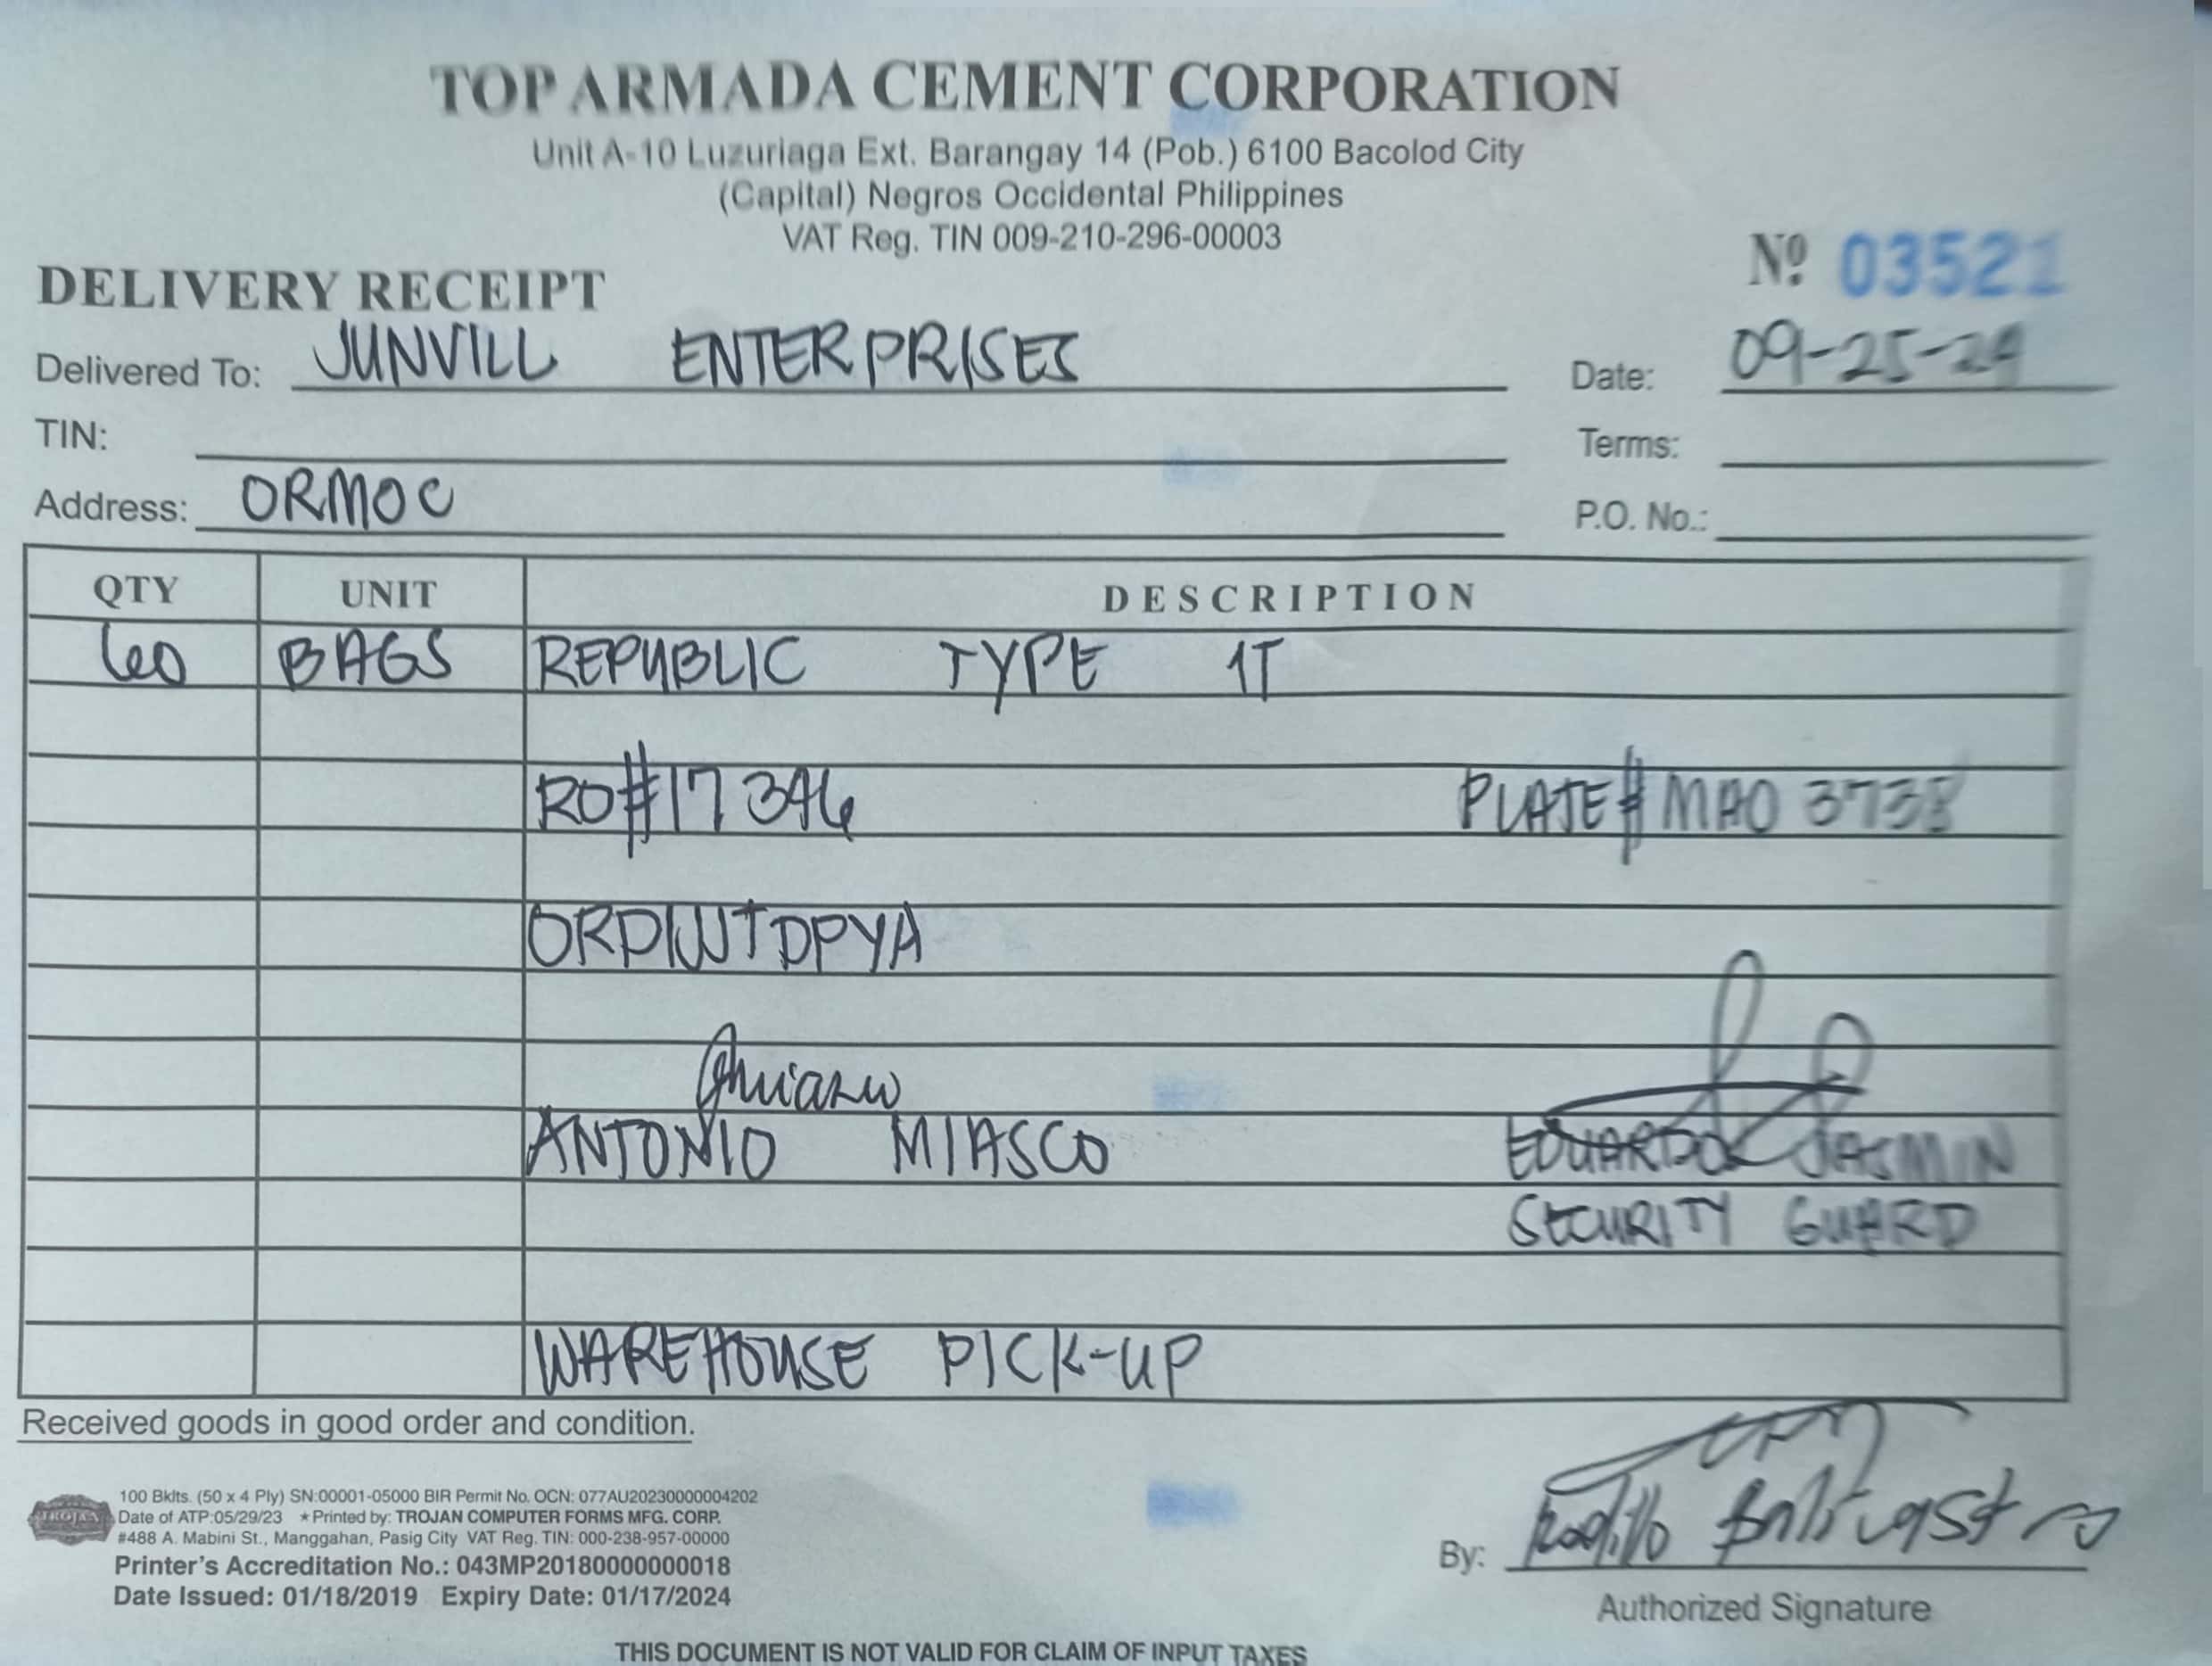 TOP ARMADA CEMENT CORPORATION
Unit A-10 Luzuriaga Ext. Barangay 14 (Pob.) 6100 Bacolod City
(Capital) Negros Occidental Philippines
VAT Reg. TIN 009-210-296-00003
Nº 03521
DELIVERY RECEIPT
Delivered To: JUNVILL ENTERPRISES Date: 09-25-24
TIN: Terms:
Address: ORMOC P.O. No.:
QTY UNIT DESCRIPTION
60 BAGS REPUBLIC TYPE 1T
RO#17346 PLATE# MAO 3738
ANTONIO MIASCO EDUARDO JASMIN
SECURITY GUARD
WAREHOUSE PICK-UP
Received goods in good order and condition.
TROJAN
100 Bklts. (50 x 4 Ply) SN:00001-05000 BIR Permit No. OCN: 077AU20230000004202
Date of ATP:05/29/23 ★Printed by: TROJAN COMPUTER FORMS MFG. CORP.
#488 A. Mabini St., Manggahan, Pasig City VAT Reg. TIN: 000-238-957-00000
Printer's Accreditation No.: 043MP20180000000018
Date Issued: 01/18/2019 Expiry Date: 01/17/2024
By:
Authorized Signature
THIS DOCUMENT IS NOT VALID FOR CLAIM OF INPUT TAXES